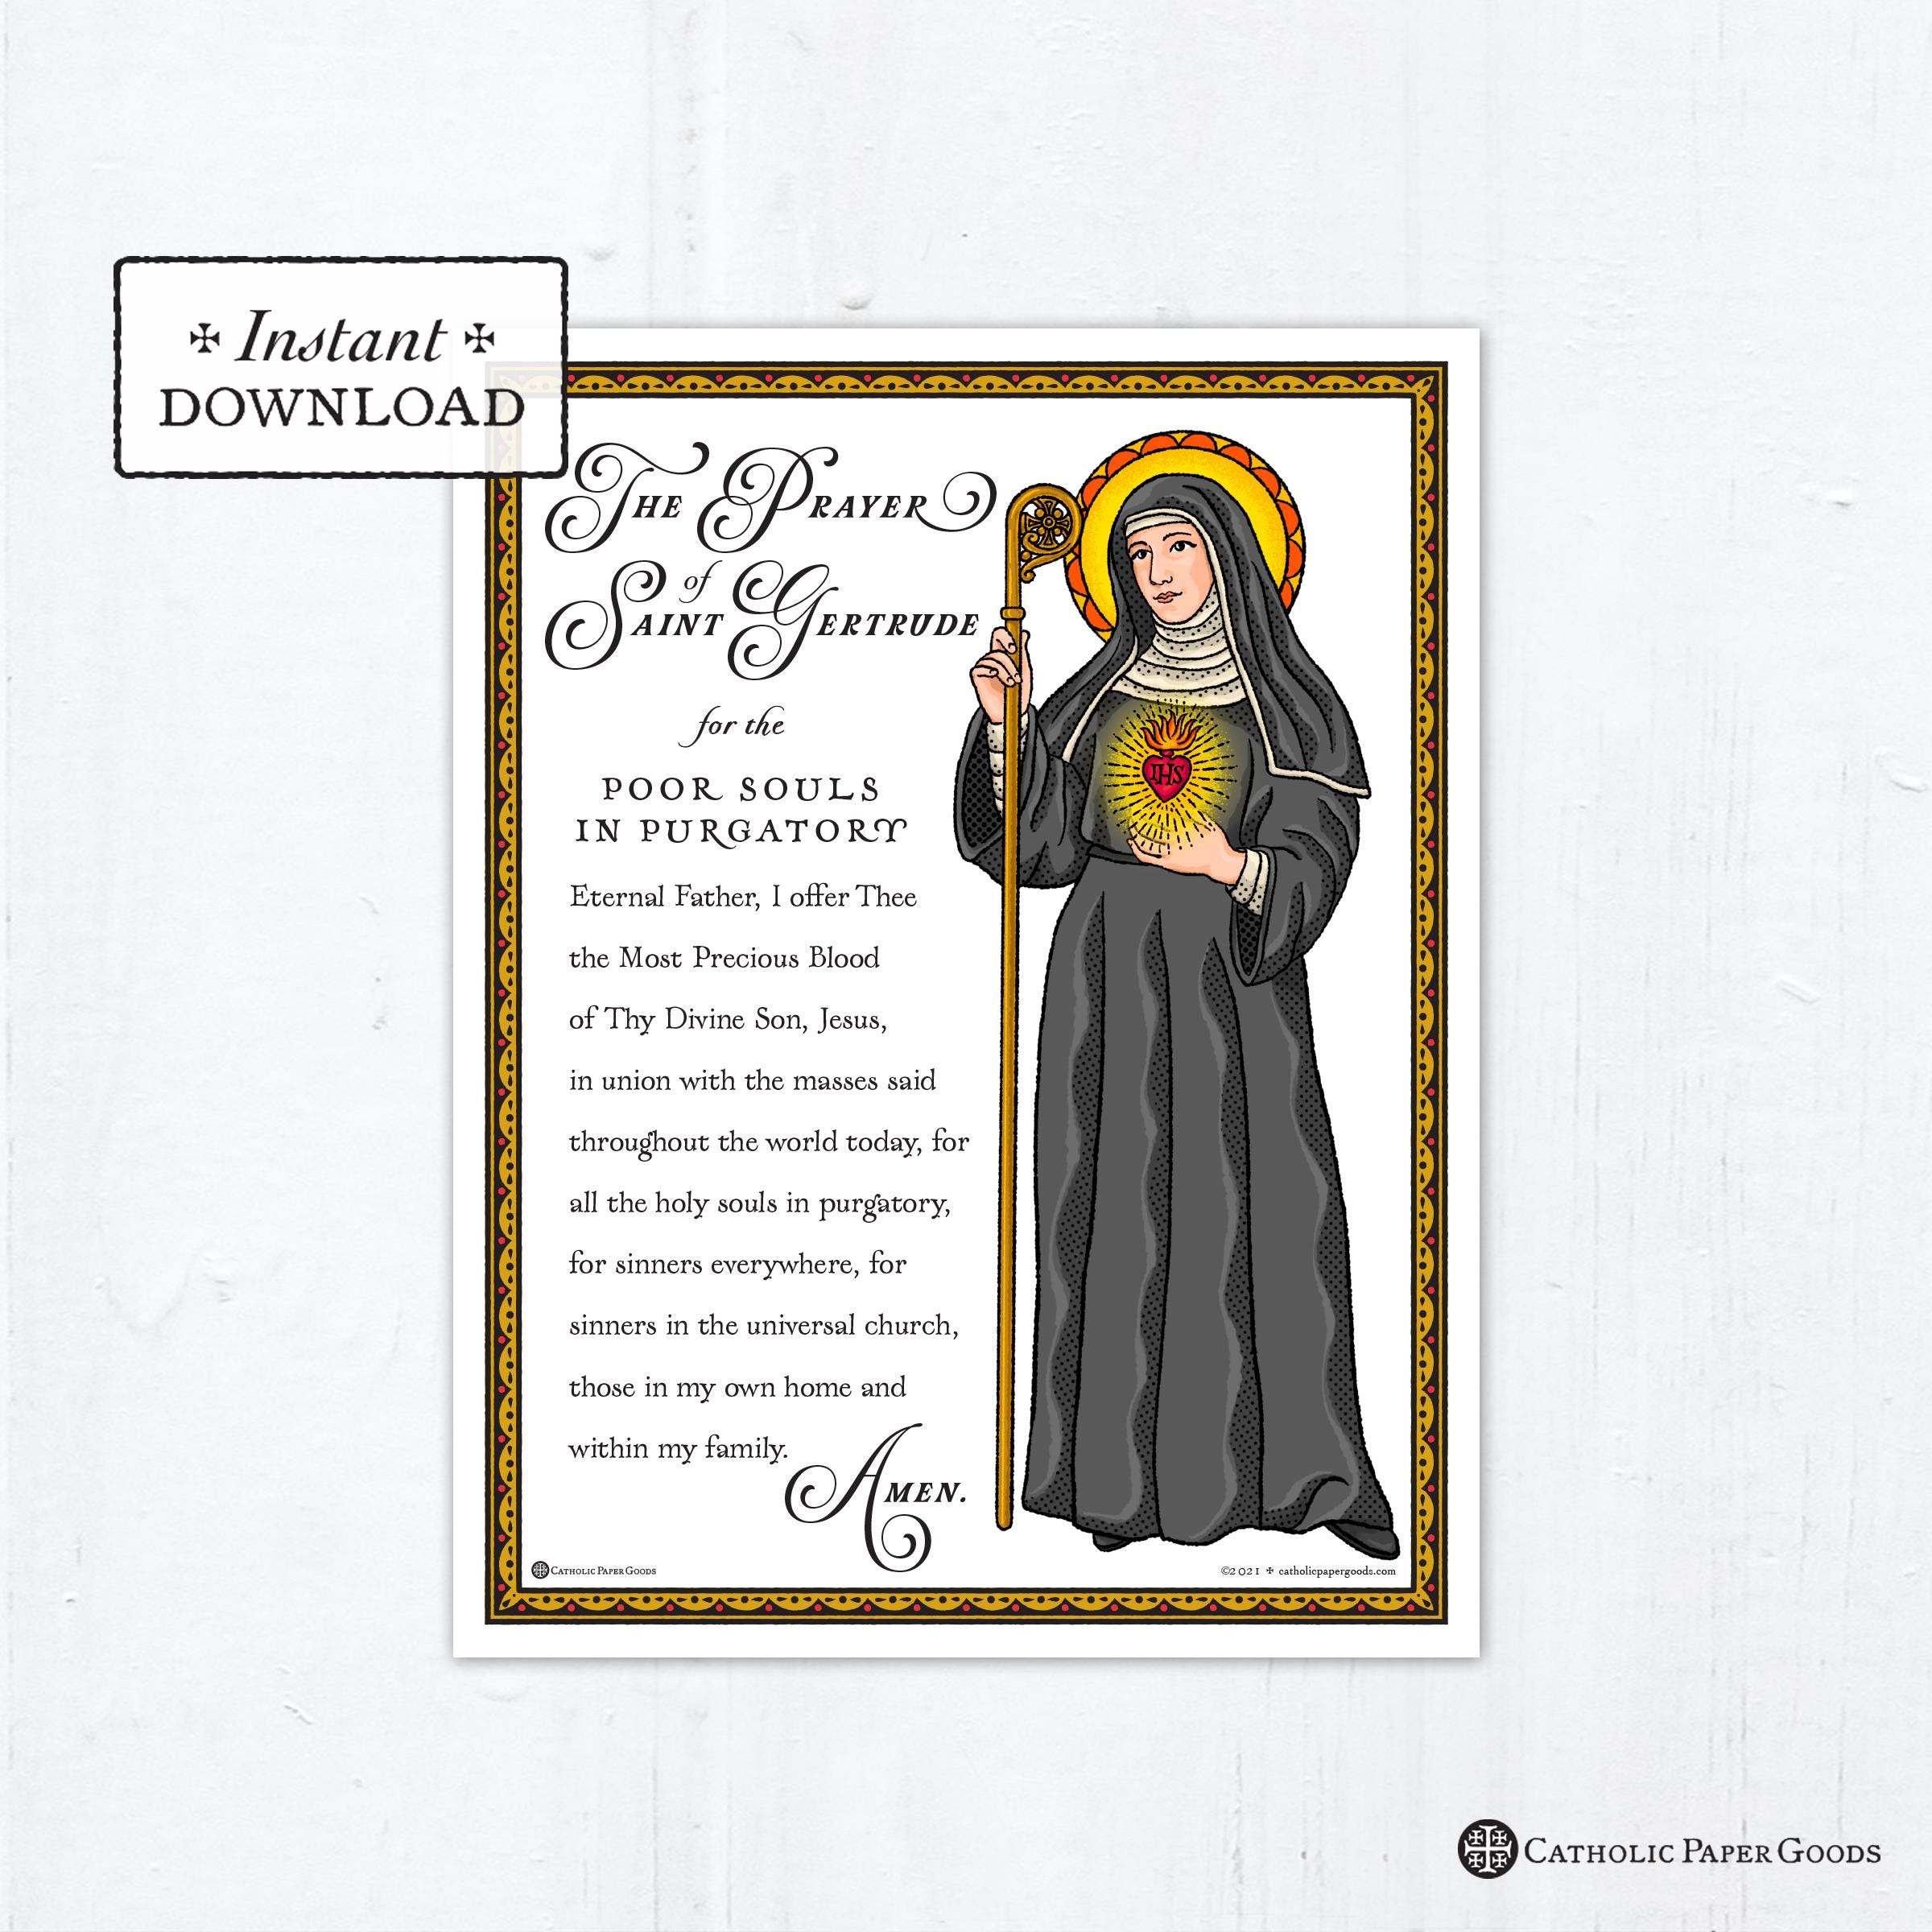 Instant
DOWNLOAD
THE PRAYER
of
SAINT GERTRUDE
for the
POOR SOULS
IN PURGATORY
IHS
Eternal Father, I offer Thee
the Most Precious Blood
of Thy Divine Son, Jesus,
in union with the masses said
throughout the world today, for
all the holy souls in purgatory,
for sinners everywhere, for
sinners in the universal church,
those in my own home and
within my family.
AMEN.
CATHOLIC PAPER GOODS
©2021 ✠ catholicpapergoods.com
CATHOLIC PAPER GOODS